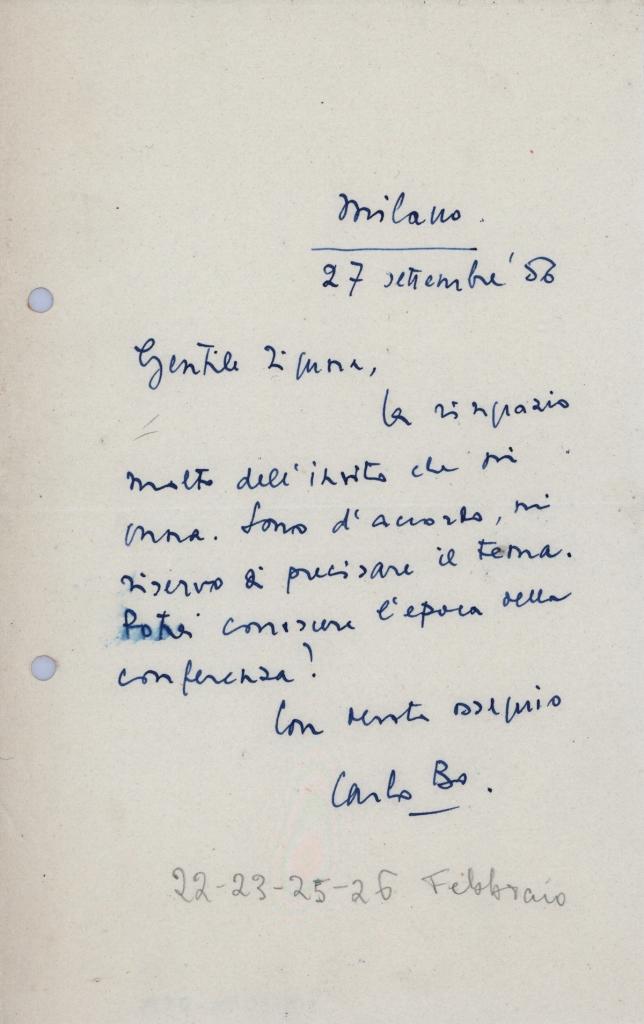 Milano.
27 settembre '56
Gentile Signora,
la ringrazio
molto dell'invito che mi
onora. Sono d'accordo, mi
riservo di precisare il tema.
Potrei conoscere l'epoca della
conferenza?
Con devoto ossequio
Carlo Bo.
22-23-25-26 Febbraio